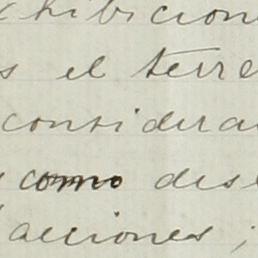 xhibicion
s el terre
considera
como dis
acciones;